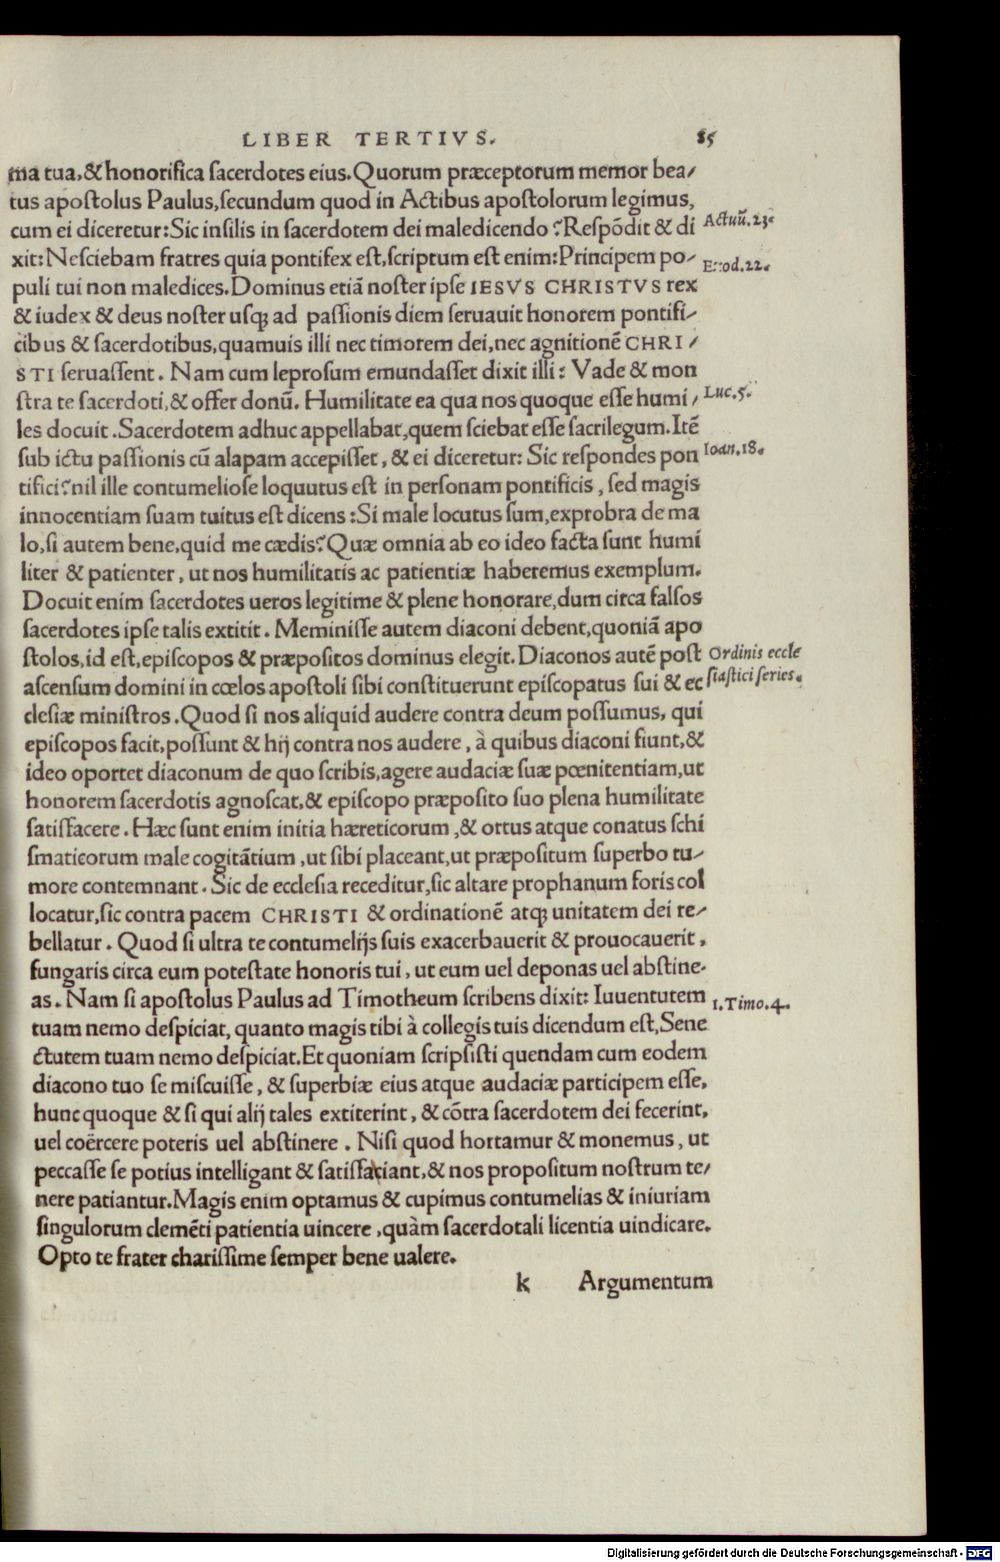 LIBER TERTIVS. 85
ma tua, & honorifica sacerdotes eius. Quorum præceptorum memor bea/
tus apostolus Paulus, secundum quod in Actibus apostolorum legimus,
cum ei diceretur: Sic insilis in sacerdotem dei maledicendo? Respõdit & di Actuũ. 23.
xit: Nesciebam fratres quia pontifex est, scriptum est enim: Principem po/ Exod. 22.
puli tui non maledices. Dominus etiã noster ipse IESVS CHRISTVS rex
& iudex & deus noster usq; ad passionis diem seruauit honorem pontifi/
cibus & sacerdotibus, quamuis illi nec timorem dei, nec agnitionẽ CHRI/
STI seruassent. Nam cum leprosum emundasset dixit illi: Vade & mon
stra te sacerdoti, & offer donũ. Humilitate ea qua nos quoque esse humi/ Luc. 5.
les docuit. Sacerdotem adhuc appellabat, quem sciebat esse sacrilegum. Itẽ
sub ictu passionis cũ alapam accepisset, & ei diceretur: Sic respondes pon Ioan. 18.
tifici? nil ille contumeliose loquutus est in personam pontificis, sed magis
innocentiam suam tuitus est dicens: Si male locutus sum, exprobra de ma
lo, si autem bene, quid me cædis? Quæ omnia ab eo ideo facta sunt humi
liter & patienter, ut nos humilitatis ac patientiæ haberemus exemplum.
Docuit enim sacerdotes ueros legitime & plene honorare, dum circa falsos
sacerdotes ipse talis extitit. Meminisse autem diaconi debent, quoniã apo
stolos, id est, episcopos & præpositos dominus elegit. Diaconos autẽ post Ordinis eccle
ascensum domini in cœlos apostoli sibi constituerunt episcopatus sui & ec siastici series.
clesiæ ministros. Quod si nos aliquid audere contra deum possumus, qui
episcopos facit, possunt & hij contra nos audere, à quibus diaconi fiunt, &
ideo oportet diaconum de quo scribis, agere audaciæ suæ pœnitentiam, ut
honorem sacerdotis agnoscat, & episcopo præposito suo plena humilitate
satisfacere. Hæc sunt enim initia hæreticorum, & ortus atque conatus schi
smaticorum male cogitãtium, ut sibi placeant, ut præpositum superbo tu/
more contemnant. Sic de ecclesia receditur, sic altare prophanum foris col
locatur, sic contra pacem CHRISTI & ordinationẽ atq; unitatem dei re/
bellatur. Quod si ultra te contumelijs suis exacerbauerit & prouocauerit,
fungaris circa eum potestate honoris tui, ut eum uel deponas uel abstine-
as. Nam si apostolus Paulus ad Timotheum scribens dixit: Iuuentutem 1. Timo. 4.
tuam nemo despiciat, quanto magis tibi à collegis tuis dicendum est, Sene
ctutem tuam nemo despiciat. Et quoniam scripsisti quendam cum eodem
diacono tuo se miscuisse, & superbiæ eius atque audaciæ participem esse,
hunc quoque & si qui alij tales extiterint, & cõtra sacerdotem dei fecerint,
uel coërcere poteris uel abstinere. Nisi quod hortamur & monemus, ut
peccasse se potius intelligant & satisfaciant, & nos propositum nostrum te/
nere patiantur. Magis enim optamus & cupimus contumelias & iniuriam
singulorum clemẽti patientia uincere, quàm sacerdotali licentia uindicare.
Opto te frater charissime semper bene ualere.
k Argumentum
Digitalisierung gefördert durch die Deutsche Forschungsgemeinschaft - DFG